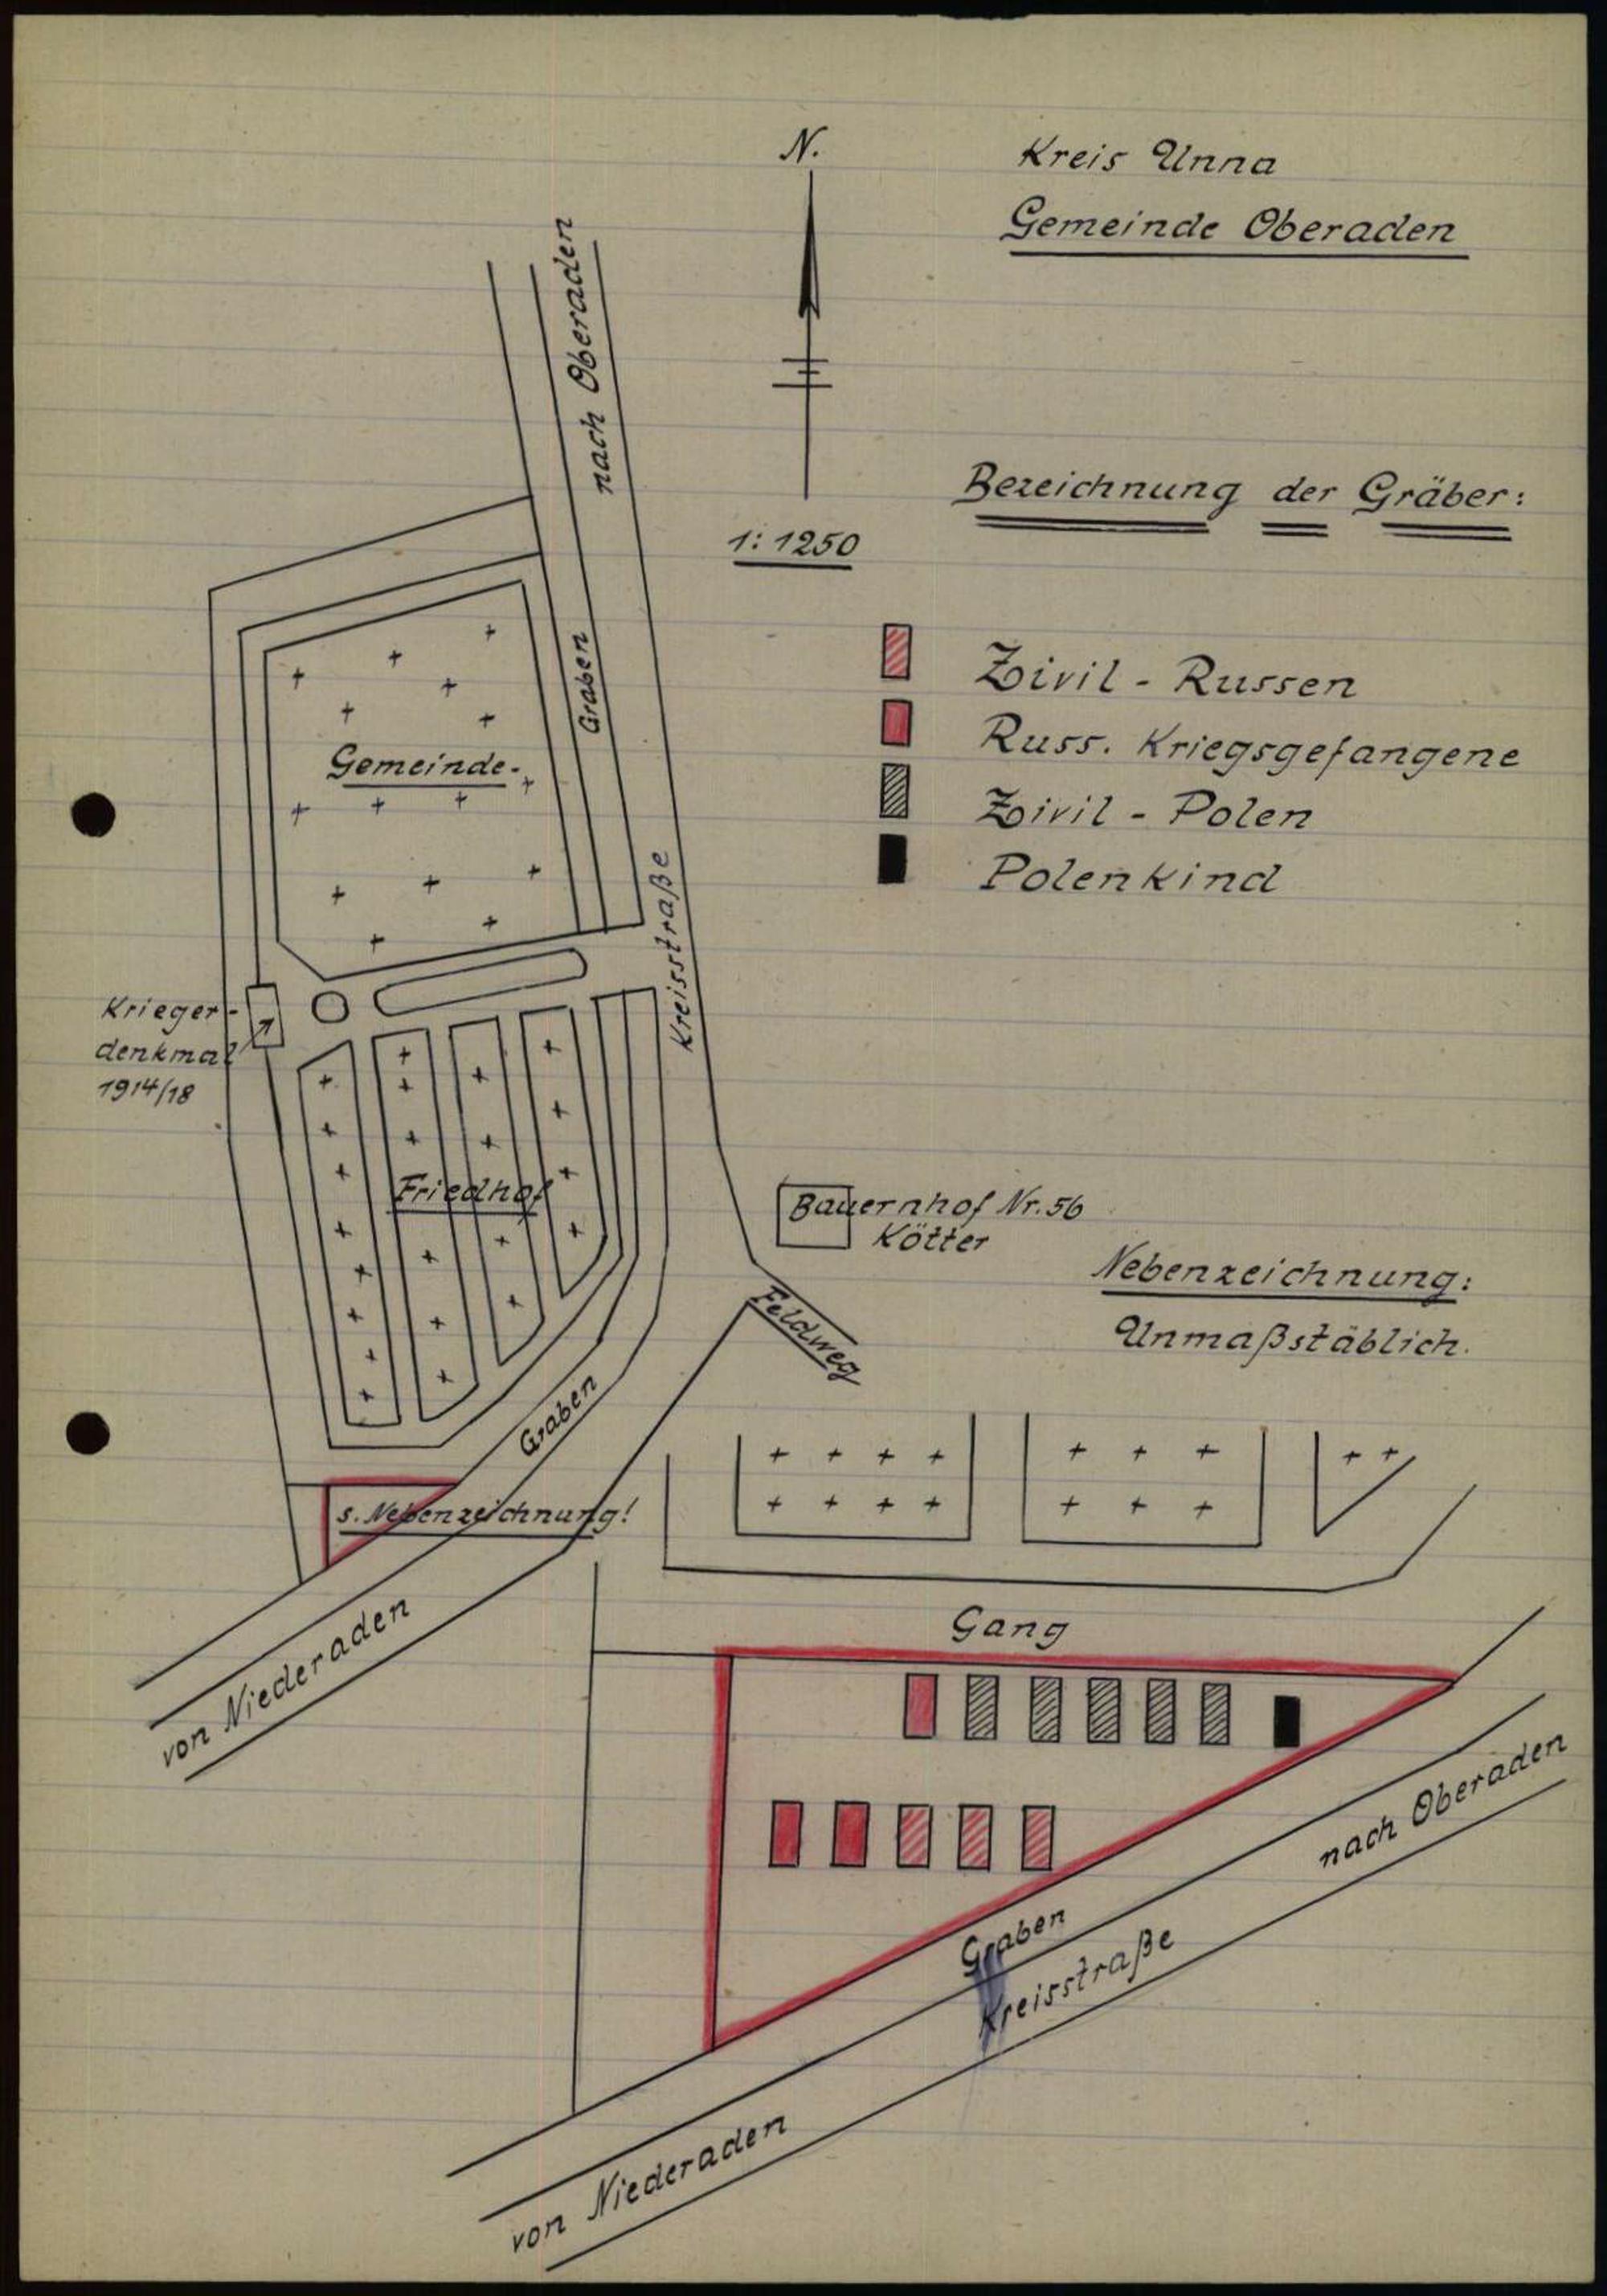 N.
Kreis Unna
Gemeinde Oberaden
nach Oberaden
Bezeichnung der Gräber:
1:1250
Zivil - Russen
Russ. Kriegsgefangene
Zivil - Polen
Polenkind
Graben
Gemeinde-
Kreisstraße
Krieger-
denkmal
1914/18
Friedhof
Bauernhof Nr. 56
Kötter
Nebenzeichnung:
Unmaßstäblich.
Feldweg
Graben
s. Nebenzeichnung!
von Niederaden
Gang
nach Oberaden
Graben
Kreisstraße
von Niederaden